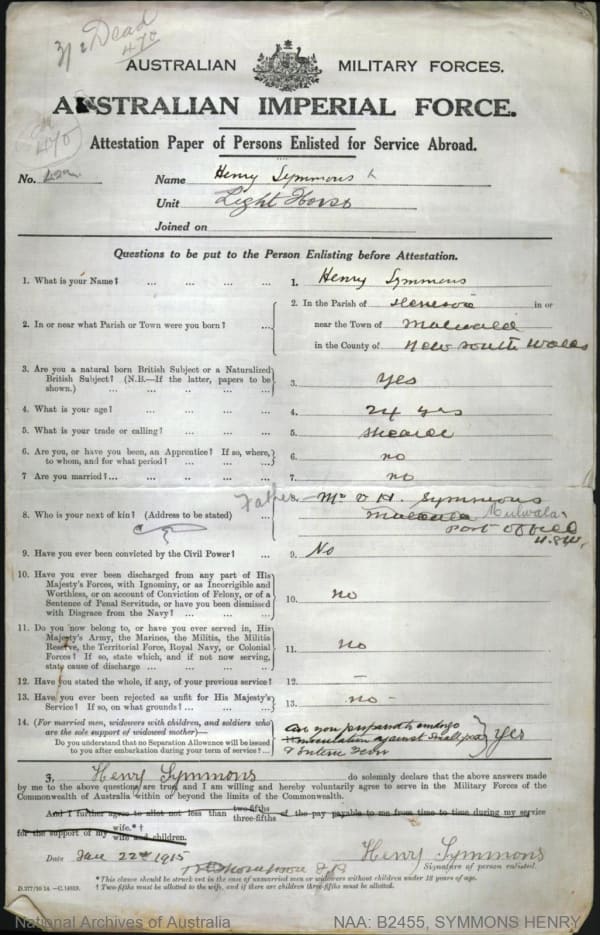 Dead
470
AUSTRALIAN MILITARY FORCES.
AUSTRALIAN IMPERIAL FORCE.
470
Attestation Paper of Persons Enlisted for Service Abroad.
No. Name Henry Symmons
Unit Light Horse
Joined on
Questions to be put to the Person Enlisting before Attestation.
1. What is your Name? ... ... ... ... 1. Henry Symmons
2. In or near what Parish or Town were you born? ... 2. In the Parish of in or
near the Town of
in the County of New South Wales
3. Are you a natural born British Subject or a Naturalized
British Subject? (N.B.—If the latter, papers to be
shown.) ... ... ... ... 3. Yes
4. What is your age? ... ... ... ... 4. 24 yrs
5. What is your trade or calling? ... ... ... 5.
6. Are you, or have you been, an Apprentice? If so, where,
to whom, and for what period? ... ... ... 6. no
7. Are you married? ... ... ... ... 7. no
8. Who is your next of kin? (Address to be stated) Father 8. Mr H. Symmons
Mulwala
Post Office
N.S.W.
9. Have you ever been convicted by the Civil Power? ... 9. No
10. Have you ever been discharged from any part of His
Majesty's Forces, with Ignominy, or as Incorrigible and
Worthless, or on account of Conviction of Felony, or of a
Sentence of Penal Servitude, or have you been dismissed
with Disgrace from the Navy? ... ... ... 10. no
11. Do you now belong to, or have you ever served in, His
Majesty's Army, the Marines, the Militia, the Militia
Reserve, the Territorial Force, Royal Navy, or Colonial
Forces? If so, state which, and if not now serving,
state cause of discharge ... ... ... 11. no
12. Have you stated the whole, if any, of your previous service? 12. –
13. Have you ever been rejected as unfit for His Majesty's
Service? If so, on what grounds? ... ... ... 13. no –
14. (For married men, widowers with children, and soldiers who
are the sole support of widowed mother)—
Do you understand that no Separation Allowance will be issued
to you after embarkation during your term of service? ...
Are you prepared to undergo
inoculation against Small pox
& Enteric Fever Yes
I, Henry Symmons do solemnly declare that the above answers made
by me to the above questions are true, and I am willing and hereby voluntarily agree to serve in the Military Forces of the
Commonwealth of Australia within or beyond the limits of the Commonwealth.
And I further agree to allot not less than two-fifths three-fifths of the pay payable to me from time to time during my service
for the support of my wife.*† wife and children.
Date Jan 22nd 1915 Henry Symmons
Signature of person enlisted.
*This clause should be struck out in the case of unmarried men or widowers without children under 18 years of age.
† Two-fifths must be allotted to the wife, and if there are children three-fifths must be allotted.
National Archives of Australia NAA: B2455, SYMMONS HENRY